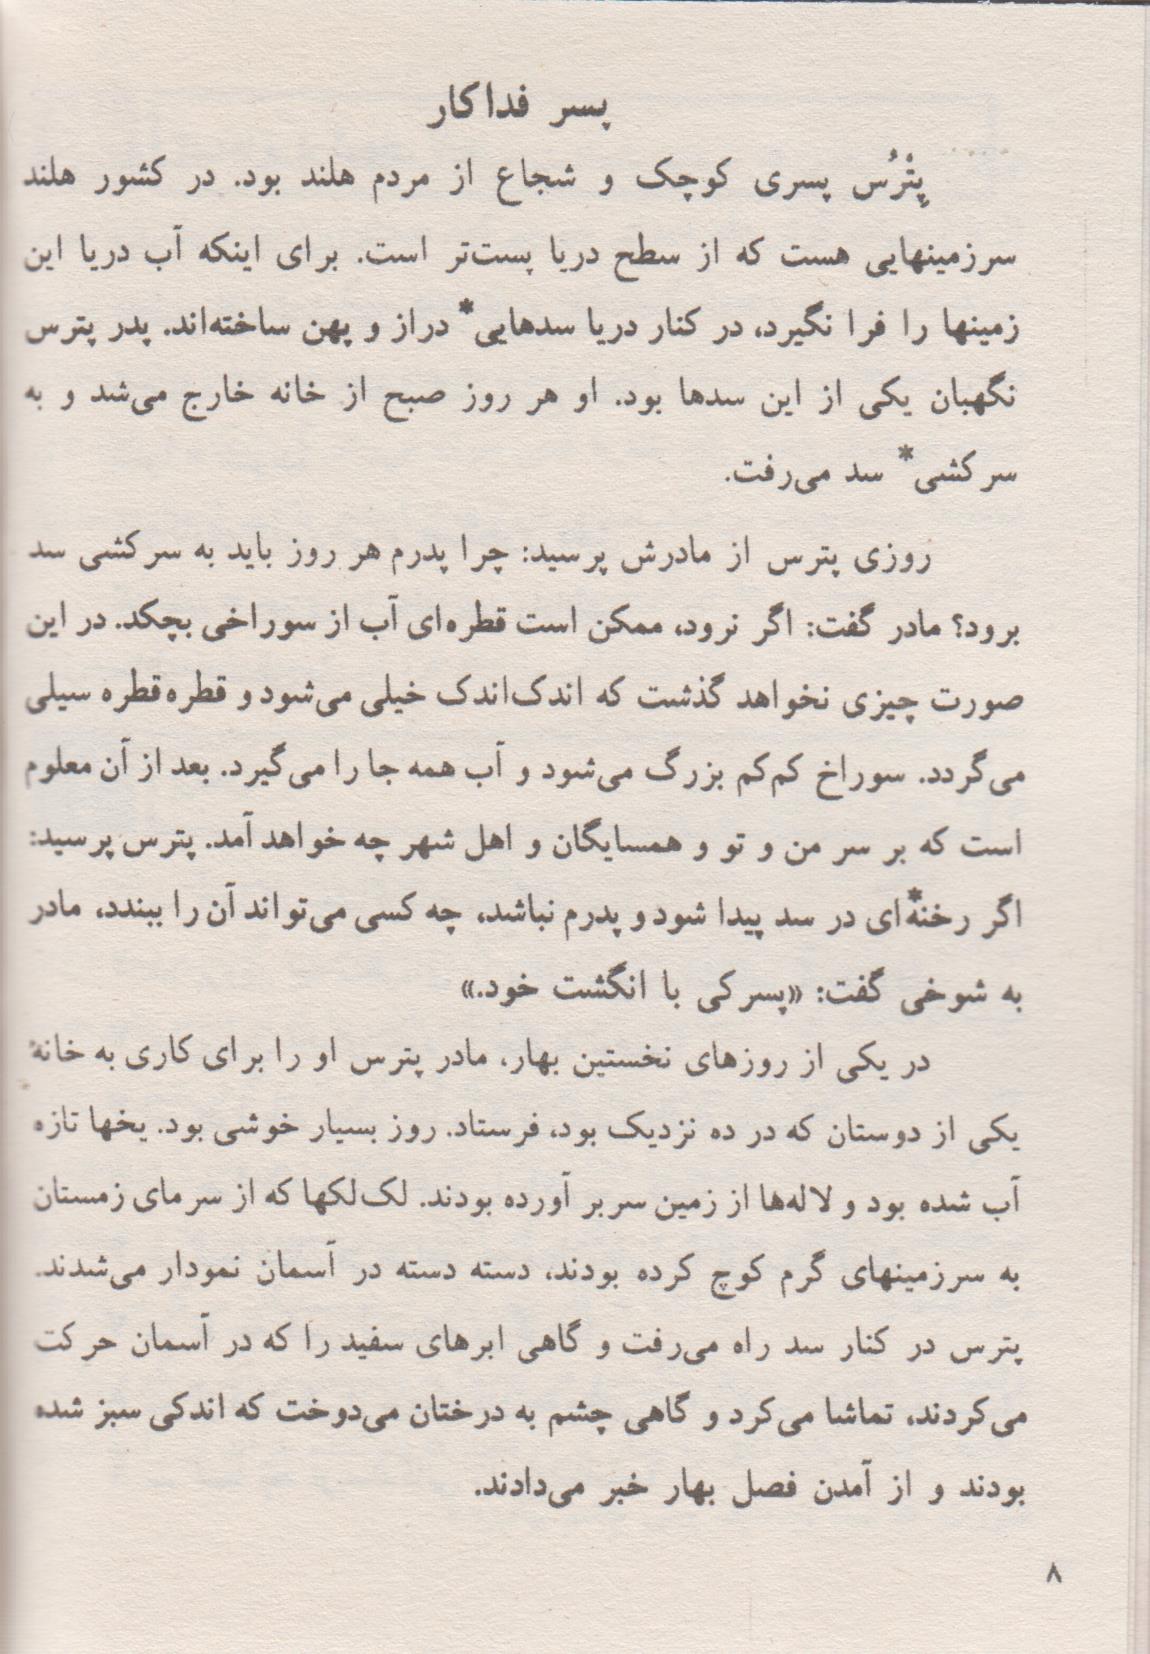 پسر فداکار
پِتْرُس پسری کوچک و شجاع از مردم هلند بود. در کشور هلند
سرزمینهایی هست که از سطح دریا پست‌تر است. برای اینکه آب دریا این
زمینها را فرا نگیرد، در کنار دریا سدهایی* دراز و پهن ساخته‌اند. پدر پترس
نگهبان یکی از این سدها بود. او هر روز صبح از خانه خارج می‌شد و به
سرکشی* سد می‌رفت.
روزی پترس از مادرش پرسید: چرا پدرم هر روز باید به سرکشی سد
برود؟ مادر گفت: اگر نرود، ممکن است قطره‌ای آب از سوراخی بچکد. در این
صورت چیزی نخواهد گذشت که اندک‌اندک خیلی می‌شود و قطره‌قطره سیلی
می‌گردد. سوراخ کم‌کم بزرگ می‌شود و آب همه جا را می‌گیرد. بعد از آن معلوم
است که بر سر من و تو و همسایگان و اهل شهر چه خواهد آمد. پترس پرسید:
اگر رخنه*‌ای در سد پیدا شود و پدرم نباشد، چه کسی می‌تواند آن را ببندد، مادر
به شوخی گفت: «پسرکی با انگشت خود.»
در یکی از روزهای نخستین بهار، مادر پترس او را برای کاری به خانهٔ
یکی از دوستان که در ده نزدیک بود، فرستاد. روز بسیار خوشی بود. یخها تازه
آب شده بود و لاله‌ها از زمین سر بر آورده بودند. لک‌لکها که از سرمای زمستان
به سرزمینهای گرم کوچ کرده بودند، دسته دسته در آسمان نمودار می‌شدند.
پترس در کنار سد راه می‌رفت و گاهی ابرهای سفید را که در آسمان حرکت
می‌کردند، تماشا می‌کرد و گاهی چشم به درختان می‌دوخت که اندکی سبز شده
بودند و از آمدن فصل بهار خبر می‌دادند.
۸